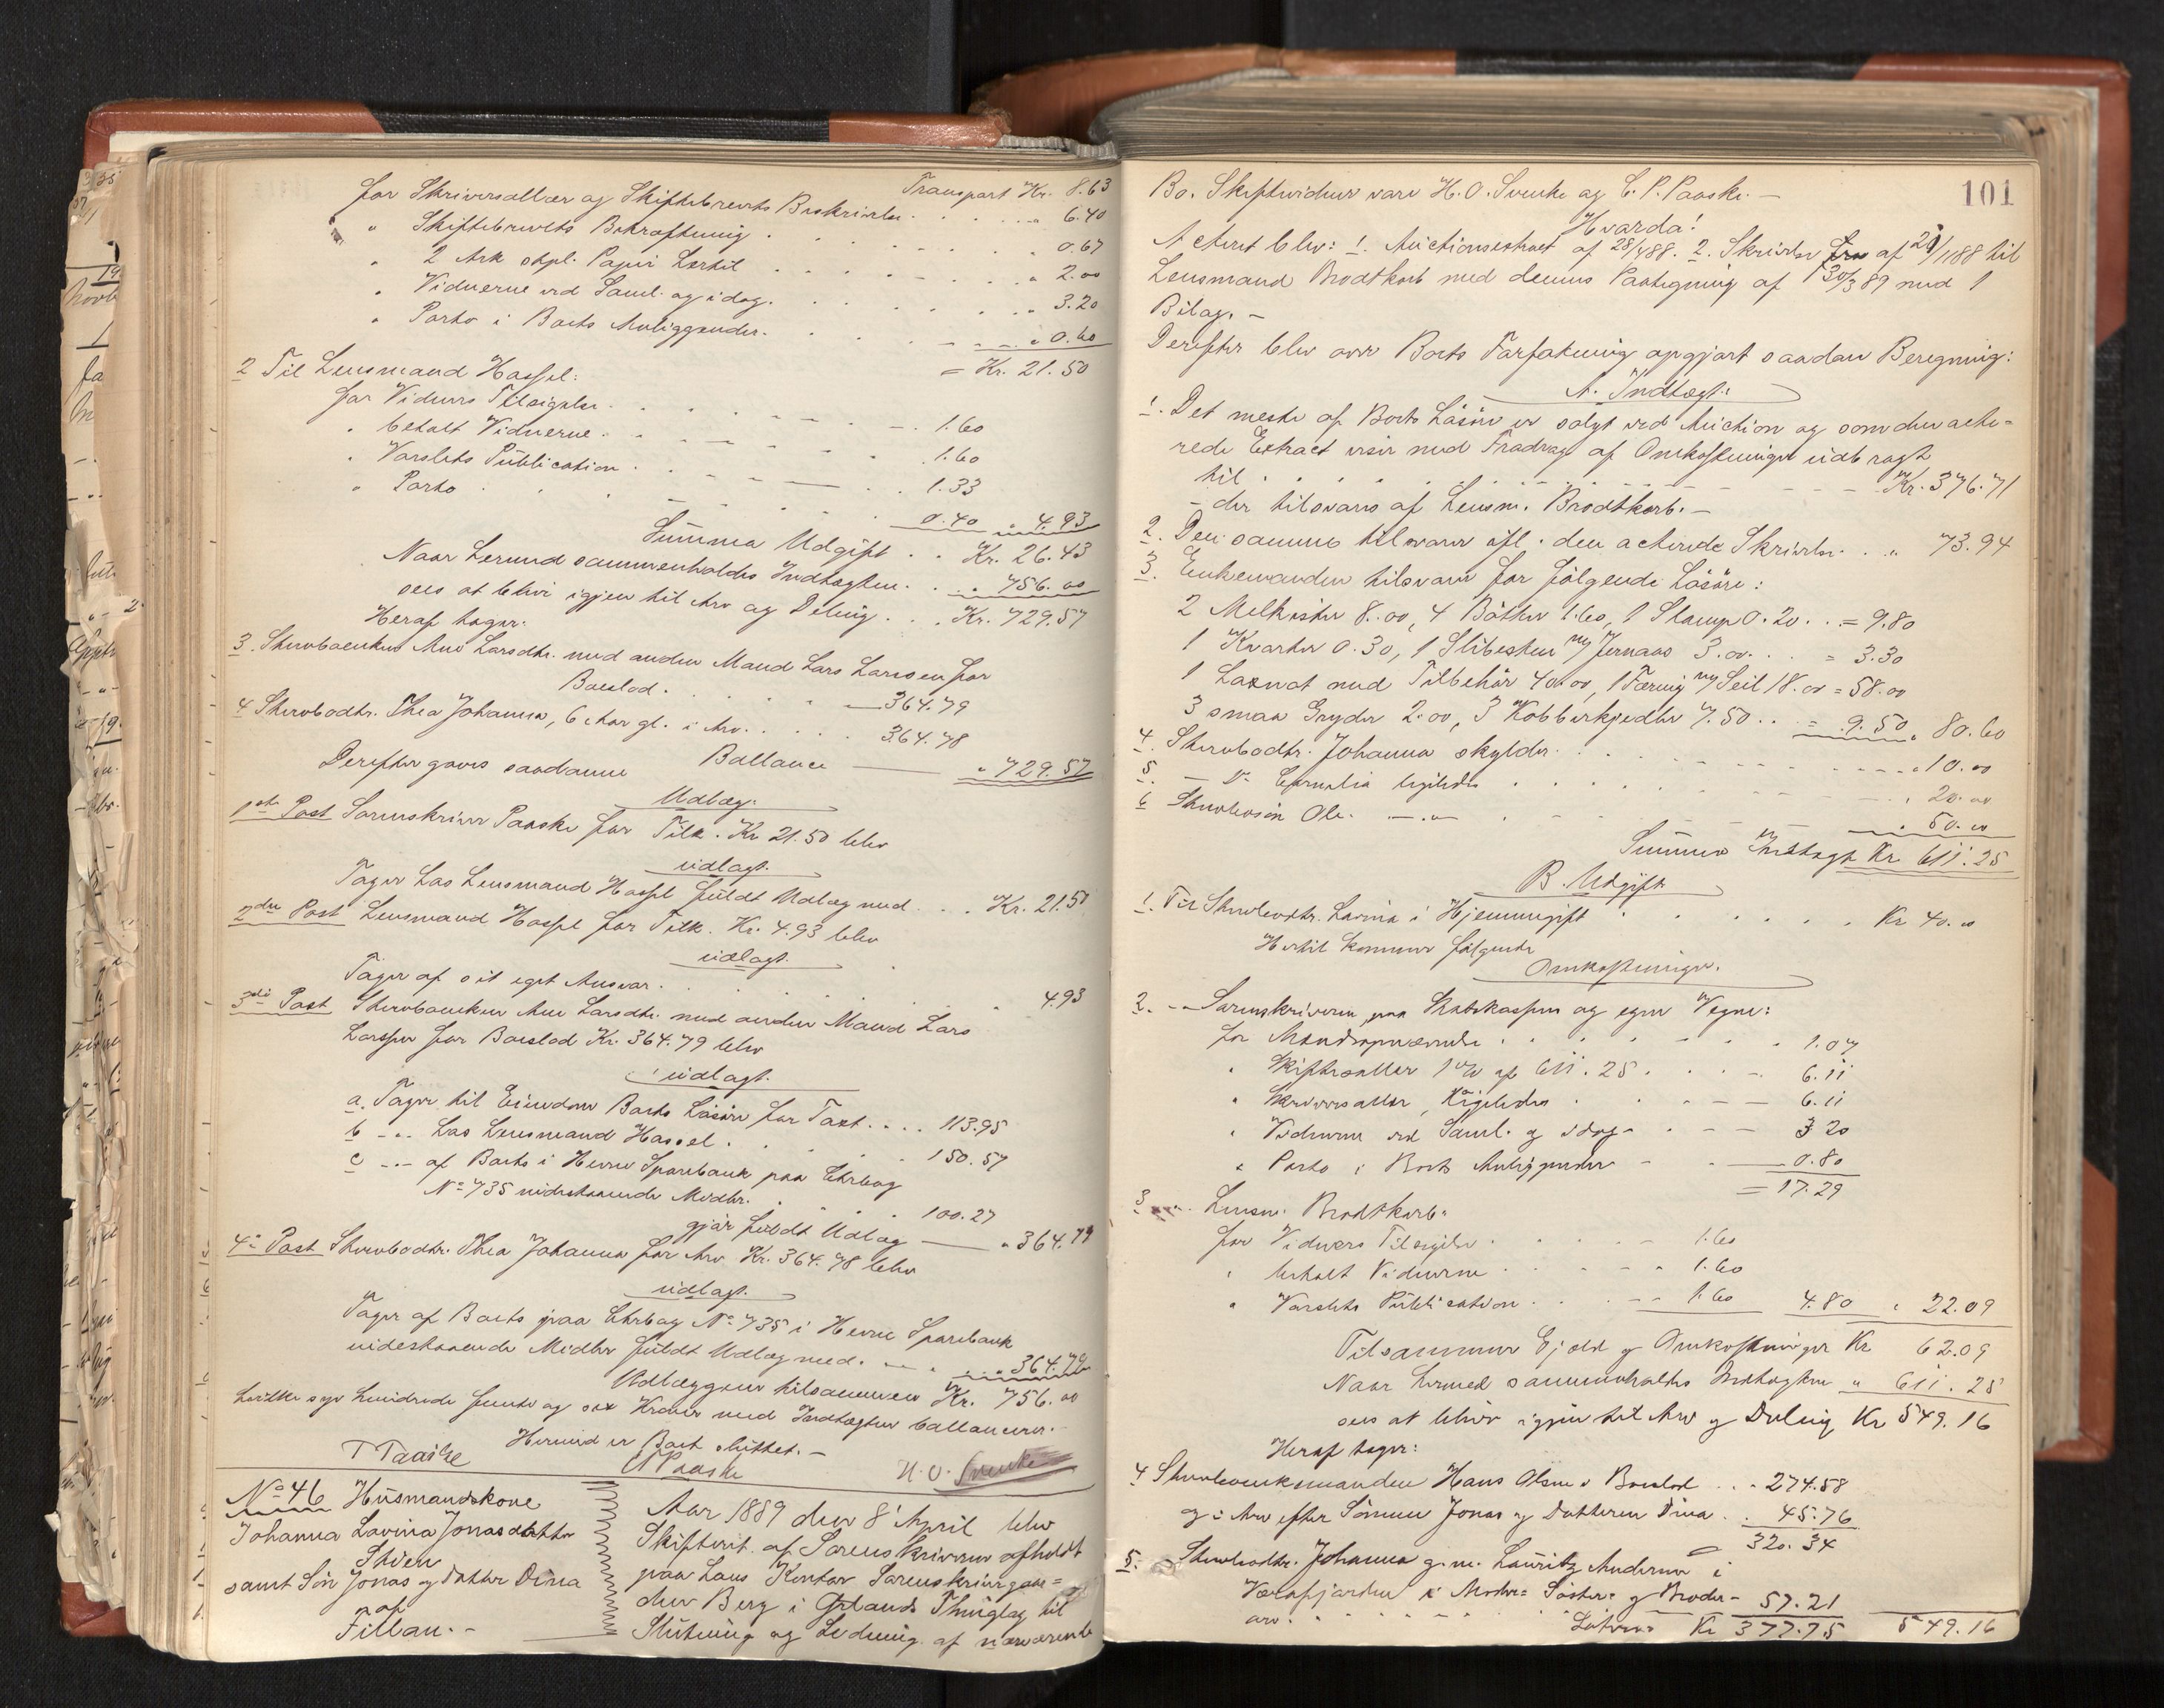 Transport Kr. 8.63
for Skriversallær og Skiftebrevets Beskrivelse . . . . " 6.40
" Skiftebrevets Bekræftning . . . . . " 0.67
" 2 Ark stpl. Papir hertil . . . . . " 2.00
" Vidnerne ved Saml. og idag. . . . . " 3.20
" Porto i Boets Anliggender. . . . . " 0.60
= Kr. 21.50
2 Til Lensmand Hassel:
for Vidners Tilsigelse . . . . 1.60
" betalt Vidnerne . . . . 1.60
" Varslets Publication . . . . 1.33
" Porto . . . . 0.40 " 4.93
Summa Udgift . . Kr. 26.43
Naar hermed sammenholdes Indtægten . . . " 756.00
sees at blive igjen til Arv og Deling . . . Kr. 729.57
Heraf tager:
3. Stervboenken Ane Larsdtr. med anden Mand Lars Larssen for
Boeslod . . . . 364.79
4 Stervbodtr. Thea Johanna, 6 Aar gl. i Arv . . . . 364.78
Ballance — " 729.57
Derefter gaves saadanne
Udlæg:
1ste Post Sorenskriver Paaske for Tilk. Kr 21.50 blev
udlagt.
Tager hos Lensmand Hassel fuldt Udlæg med . . . Kr. 21.50
2den Post Lensmand Hassel for Tilk. Kr. 4.93 blev
udlagt.
Tager af sit eget Ansvar . . . . " 4.93
3die Post Stervboenken Ane Larsdtr. med anden Mand Lars
Larssen for Boeslod Kr. 364.79 blev
udlagt.
a. Tager til Eiendom Boets Løsøre for Taxt . . . . 113.95
b -"- hos Lensmand Hassel . . . . 150.57
c -"- af Boets i Hevne Sparebank paa Chrbog
No 735 indestaaende Midler . . . . 100.27
gjør fuldt Udlæg — " 364.79
4de Post Stervbodtr. Thea Johanna for Arv Kr. 364.78 blev
udlagt.
Tager af Boets paa Chrbog No 735 i Hevne Sparebank
indestaaende Midler fuldt Udlæg med . . . " 364.78
Udlæggene tilsammen Kr. 756.00
hvilke syv hundrede femti og sex Kroner med Indtægten ballancerer.
Hermed er Boet sluttet. -
T Paaske C P Paaske H. O. Svenke
No 46 Husmandskone
Johanna Lovina Jonasdatter
Støen
samt Søn Jonas og Datter Dina
af
Fillan. -
Aar 1889 den 8 April blev
Skifteret af Sorenskriveren afholdt
paa hans Kontor Sorenskrivergaar=
den Berg i Ørlands Thinglag til
Slutning og Ledning af nærværende
101
Bo. Skiftevidner vare H. O. Svenke og C. P. Paaske. -
Hvorda!
Acteret blev: 1. Auctionsextract af 28/4 88. 2. Skrivelse af 21/1188 til
Lensmand Brodtkorb med dennes Paategning af 30/3 89 med 1
Bilag. -
Derefter blev over Boets Forfatning opgjort saadan Beregning:
A. Indtægt:
1. Det meste af Boets Løsøre er solgt ved Auction og som den acte=
rede Extract viser med Fradrag af Omkostninger udbragt
til . . . . . Kr. 376.71
- der tilsvares af Lensm. Brodtkorb. -
2. Den samme tilsvarer ifl. den acterede Skrivelse . . " 73.94
3. Enkemanden tilsvarer for følgende Løsøre:
2 Melkister 8.00, 4 Bøtter 1.60, 1 Stamp 0.20 . . = 9.80
1 Kvarter 0.30, 1 Slibesten m/ Jernaas 3.00 . . . = 3.30
1 Laxnot med Tilbehør 40.00, 1 Færing m/ Seil 18.00 = 58.00
3 smaa Gryder 2.00, 3 Kobberkjedler 7.50 . . = 9.50 " 80.60
4. Stervbodtr. Johanna skylder . . . . " 10.00
5. — Do Cornelia ligeledes . . . . " 20.00
6 Stervbosøn Ole. —"— . . . . " 50.00
Summa Indtægt Kr. 611.25
B. Udgift
1. Til Stervbodtr. Lovina i Hjemmegift . . . . Kr 40.00
Hertil kommer følgende
Omkostninger.
2. -"- Sorenskriveren, paa Statskassens og egne Vegne:
for Mandsopnævnelse . . . . 1.07
" Skiftesallær 1% af 611.25 . . . . 6.11
" Skriversallær, ligeledes . . . . 6.11
" Vidnerne ved Saml. og idag . . . 3 20
" Porto i Boets Anliggender . . . 0.80
= 17.29
3 -"- Lensm. Brodtkorb:
for Vidners Tilsigelse . . . . 1.60
" betalt Vidnerne . . . . 1.60
" Varslets Publication . . . 1.60 4.80 " 22.09
Tilsammen Gjæld og Omkostninger Kr 62.09
Naar hermed sammenholdes Indtægten " 611.25
sees at blive igjen til Arv og Deling Kr 549.16
Heraf tager:
4 Stervboenkemanden Hans Olsen i Boeslod . . . 274.58
og i Arv efter Sønnen Jonas og Datteren Dina . . 45.76
= 320.34
5. Stervbodtr. Johanna g. m. Lauritz Andersen i
Værnfjorden i Moder= Søster= og Broder- 57.21
arv . . . . Latus Kr 377.75 549.16